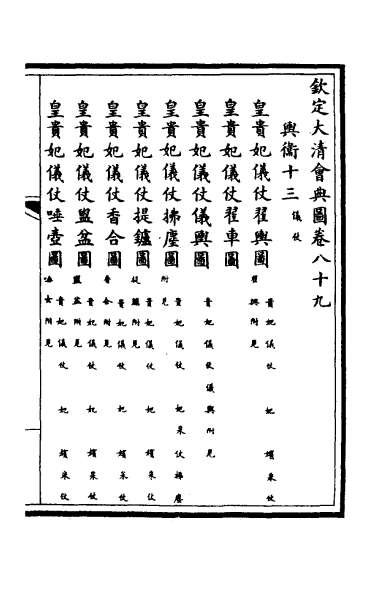 欽定大清會典圖卷八十九
輿衞十三 儀仗
皇貴妃儀仗翟輿圖 貴妃儀仗 妃 嬪采仗翟輿附見
皇貴妃儀仗翟車圖
皇貴妃儀仗儀輿圖 貴妃儀仗儀輿附見
皇貴妃儀仗拂塵圖 貴妃儀仗 妃采仗拂塵附見
皇貴妃儀仗提鑪圖 貴妃儀仗 妃 嬪采仗提鑪附見
皇貴妃儀仗香合圖 貴妃儀仗 妃 嬪采仗香合附見
皇貴妃儀仗盥盆圖 貴妃儀仗 妃 嬪采仗盥盆附見
皇貴妃儀仗唾壺圖 貴妃儀仗 妃 嬪采仗唾壺附見